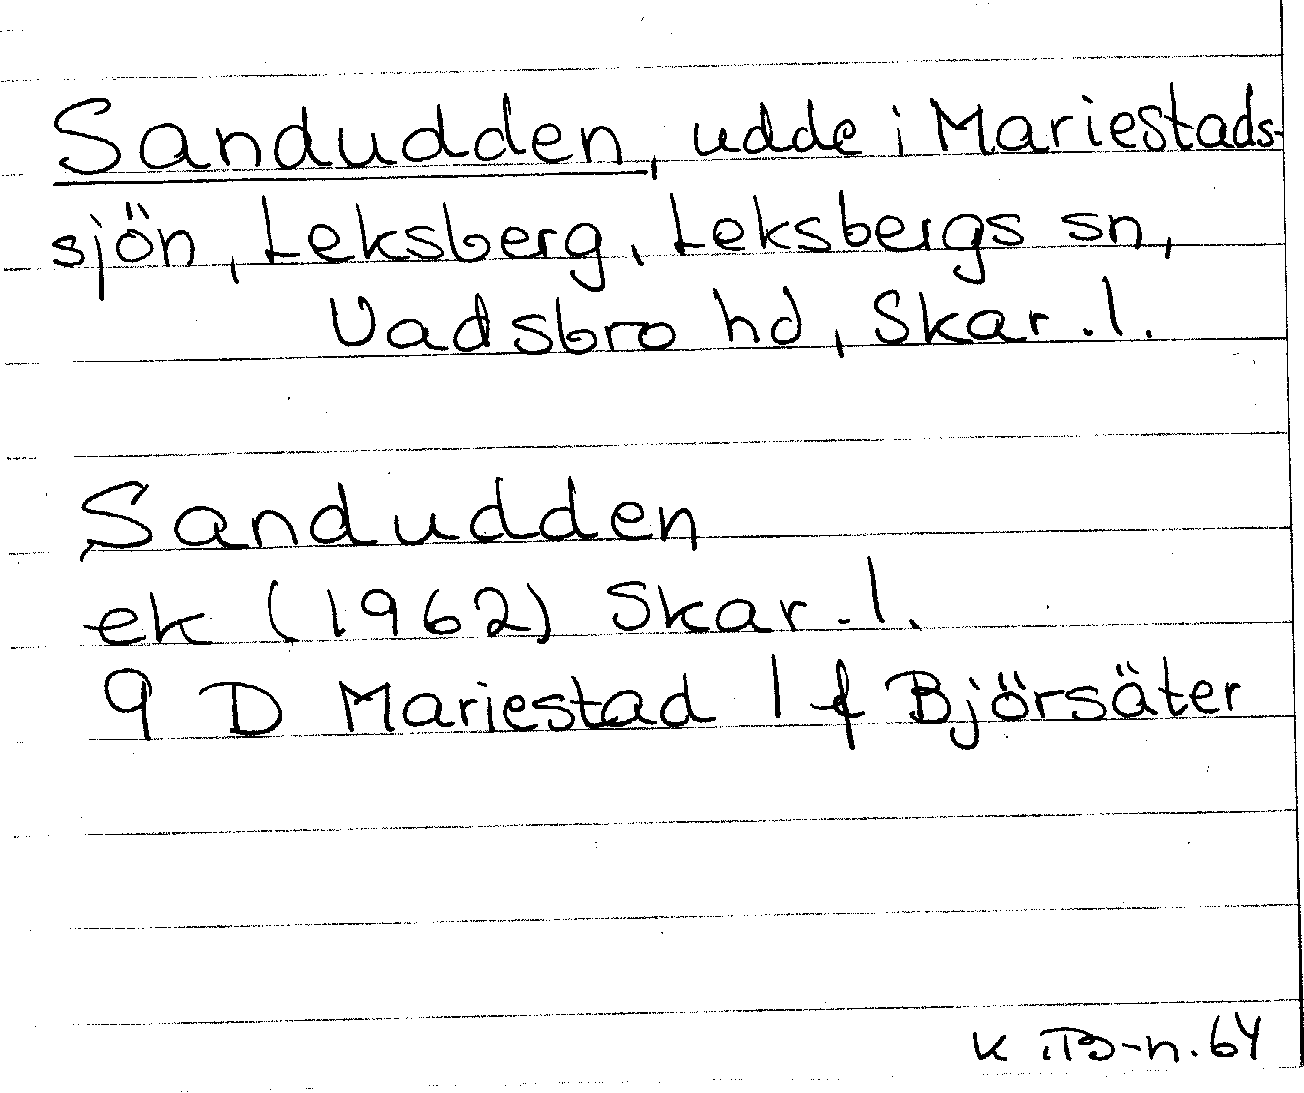 Sandudden, udde i Mariestads-
sjön, Leksberg, Leksbergs sn,
Vadsbro hd, Skar. l.
Sandudden
ek (1962) Skar. l.
9 D Mariestad 1 f Björsäter
K .B-n. 64